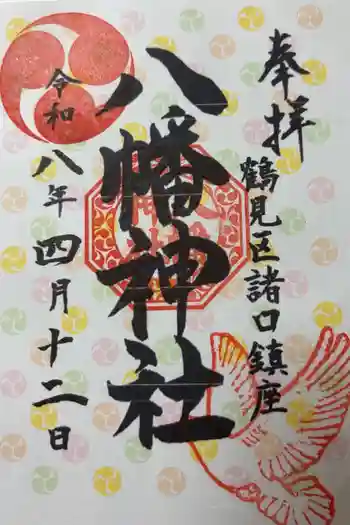 奉拝
鶴見区諸口鎮座
八幡神社
令和八年四月十二日